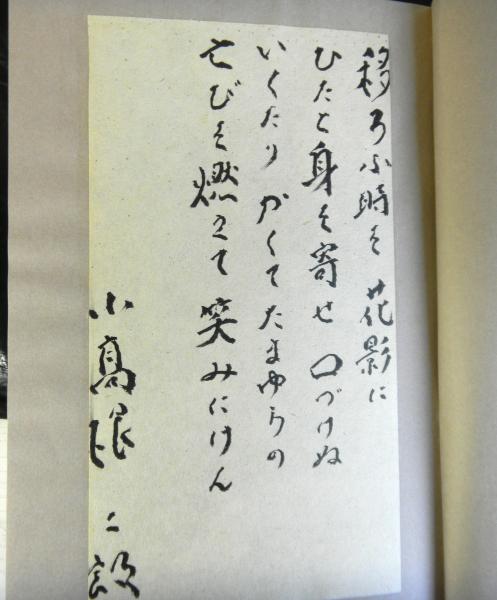 移ろふ時を花影に
ひたと身を寄せ口づけぬ
いくたりかくてたまゆらの
亡びを燃えて笑みにけん
小高根二郎